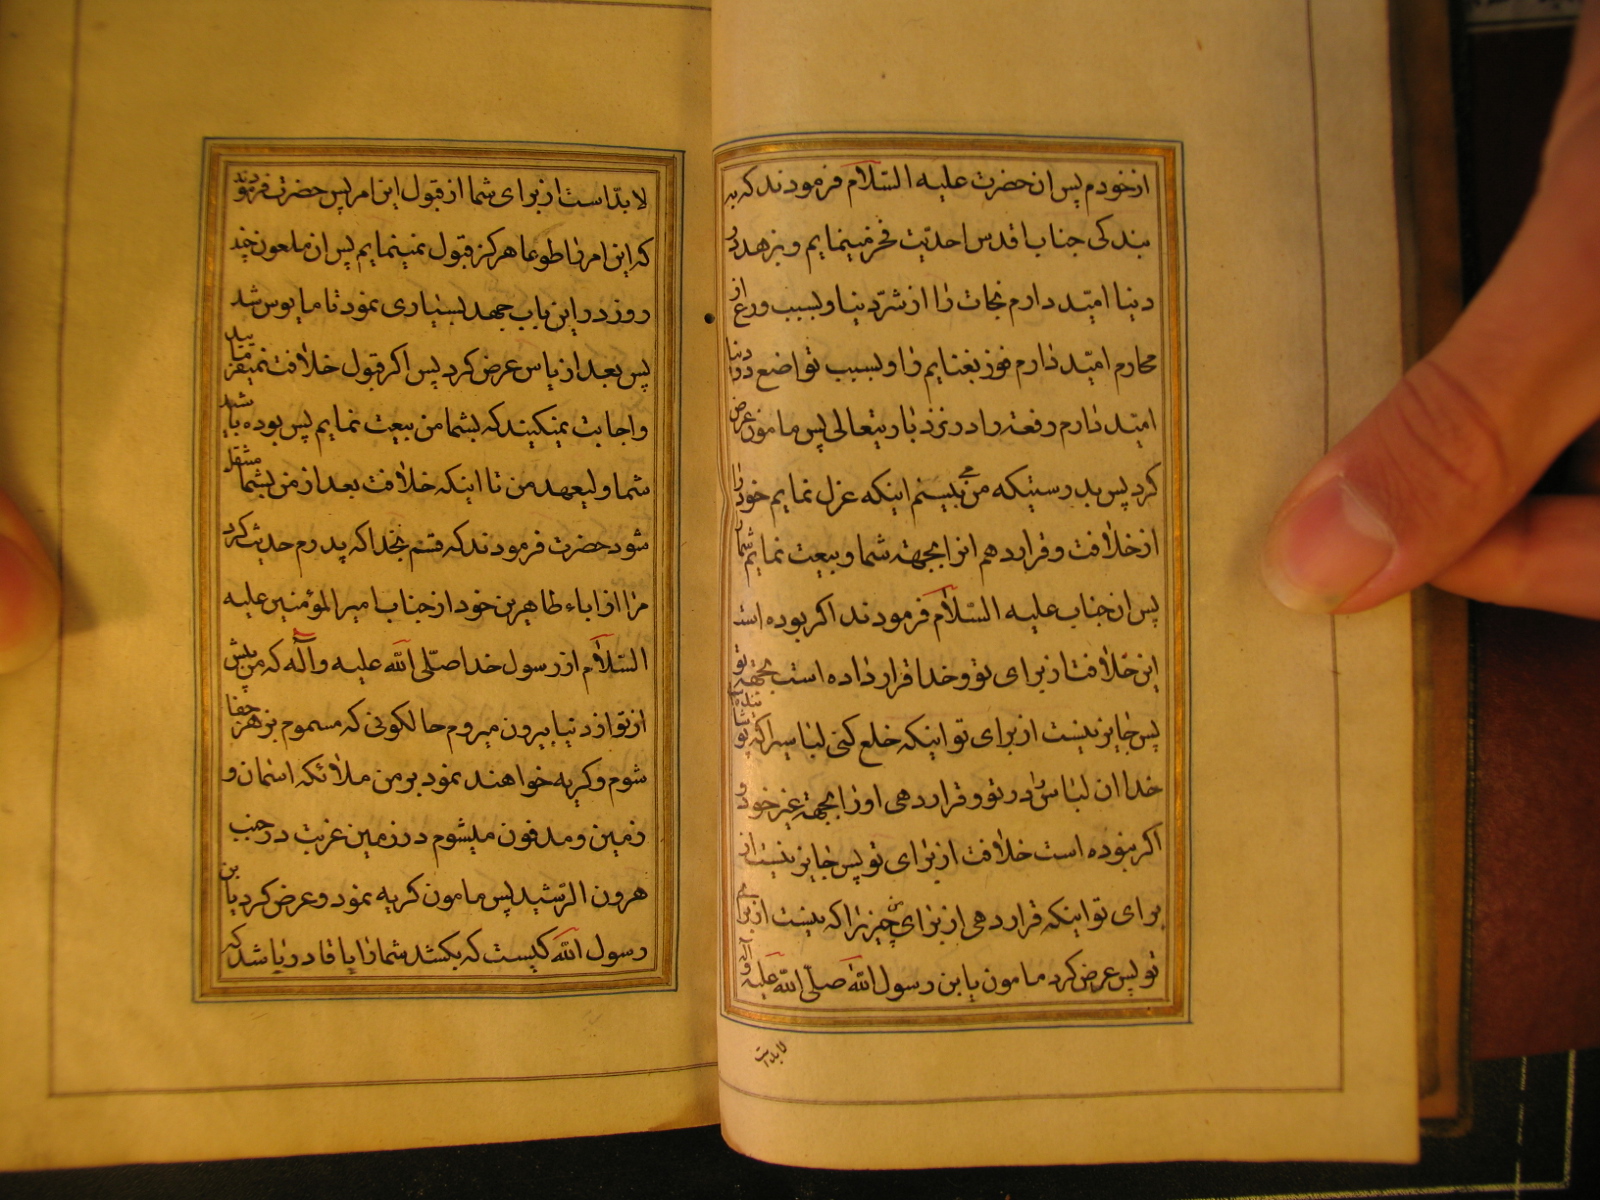 از خودم پس ان حضرت علیه السّلام فرمودند که به
بندکی جناب اقدس احدیّت فخر مینمایم و بزهد در
دنیا امیّد دارم نجات را از شرّ دنیا و بسبب ورع از
محارم امیّد دارم فوز بغنایم را و بسبب تواضع در دنیا
امیّد دارم رفعت را در نزد باریتعالی پس مامون عرض
کرد پس بدرستیکه من می بینم اینکه عزل نمایم خود را
از خلافت و قرار دهم انرا بجهة شما و بیعت نمایم شما را
پس ان جناب علیه السّلام فرمودند اکر بوده است
این خلافت از برای تو و خدا قرار داده است بجهة تو
پس جایز نیست از برای تو اینکه خلع کنی لباسیرا که
خدا ان لباس را در تو و قرار دهی او را بجهة غیر خود و
اکر نبوده است خلافت از برای تو پس جایز نیست از
برای تو اینکه قرار دهی از برای من چیزیرا که نیست از برای
تو پس عرض کرد مامون یابن رسول اللّه صلّی اللّه علیه و آله
لابد است
لابدّ است از برای شما از قبول این امر پس حضرت فرمودند
که این امر را طوعا هرکز قبول نمینمایم پس ان ملعون چند
روز در این باب جهد بسیاری نمود تا مایوس شد
پس بعد از یاس عرض کرد پس اکر قبول خلافت نمیفرمائید
و اجابت نمیکنید که بشما من بیعت نمایم پس بوده باشید
شما ولیعهد من تا اینکه خلافت بعد از من بشما منتقل
شود حضرت فرمودند که قسم بخدا که پدرم حدیث کرد
مرا از اباء طاهرین خود از جناب امیر المؤمنین علیه
السّلام از رسول خدا صلّی اللّه علیه و آله که من پیش
از تو از دنیا بیرون میروم حالکونی که مسموم بزهر جفا
شوم و کریه خواهند نمود بر من ملائکه اسمان و
زمین و مدفون میشوم در زمین غربت در جنب
هرون الرّشید پس مامون کریه نمود و عرض کرد یا بن
رسول اللّه کیست که بکشد شما را یا قادر باشد که